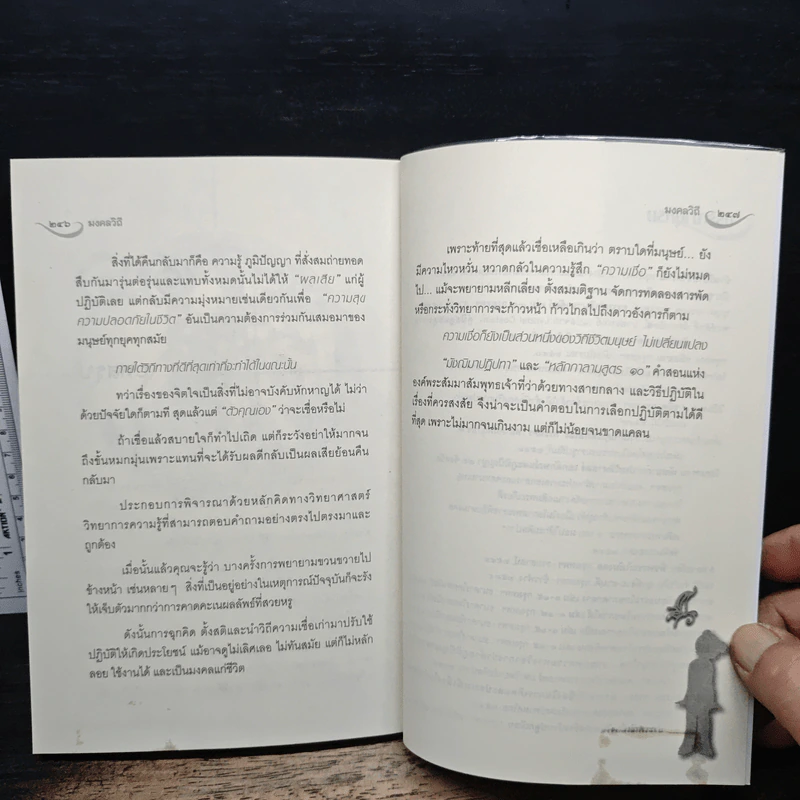 ๒๔๖ มงคลวิถี
สิ่งที่ได้คืนกลับมาก็คือ ความรู้ ภูมิปัญญา ที่สั่งสมถ่ายทอด
สืบกันมารุ่นต่อรุ่นและแทบทั้งหมดนั้นไม่ได้ให้ “ผลเสีย” แก่ผู้
ปฏิบัติเลย แต่กลับมีความมุ่งหมายเช่นเดียวกันเพื่อ “ความสุข
ความปลอดภัยในชีวิต” อันเป็นความต้องการร่วมกันเสมอมาของ
มนุษย์ทุกยุคทุกสมัย
ภายใต้วิถีทางที่ดีที่สุดเท่าที่จะทำได้ในขณะนั้น
ทว่าเรื่องของจิตใจเป็นสิ่งที่ไม่อาจบังคับหักหาญได้ ไม่ว่า
ด้วยปัจจัยใดก็ตามที สุดแล้วแต่ “ตัวคุณเอง” ว่าจะเชื่อหรือไม่
ถ้าเชื่อแล้วสบายใจก็ทำไปเถิด แต่ก็ระวังอย่าให้มากจน
ถึงขั้นหมกมุ่นเพราะแทนที่จะได้รับผลดีกลับเป็นผลเสียย้อนคืน
กลับมา
ประกอบการพิจารณาด้วยหลักคิดทางวิทยาศาสตร์
วิทยาการความรู้ที่สามารถตอบคำถามอย่างตรงไปตรงมาและ
ถูกต้อง
เมื่อนั้นแล้วคุณจะรู้ว่า บางครั้งการพยายามขวนขวายไป
ข้างหน้า เช่นหลายๆ สิ่งที่เป็นอยู่อย่างในเหตุการณ์ปัจจุบันก็จะรัง
ให้เจ็บตัวมากกว่าการคาดคะเนผลลัพธ์ที่สวยหรู
ดังนั้นการฉุกคิด ตั้งสติและนำวิถีความเชื่อเก่ามาปรับใช้
ปฏิบัติให้เกิดประโยชน์ แม้อาจดูไม่เลิศเลอ ไม่ทันสมัย แต่ก็ไม่หลัก
ลอย ใช้งานได้ และเป็นมงคลแก่ชีวิต
มงคลวิถี ๒๔๗
เพราะท้ายที่สุดแล้วเชื่อเหลือเกินว่า ตราบใดที่มนุษย์... ยัง
มีความไหวหวั่น หวาดกลัวในความรู้สึก “ความเชื่อ” ก็ยังไม่หมด
ไป... แม้จะพยายามหลีกเลี่ยง ตั้งสมมติฐาน จัดการทดลองสารพัด
หรือกระทั่งวิทยาการจะก้าวหน้า ก้าวไกลไปถึงดาวอังคารก็ตาม
ความเชื่อก็ยังเป็นส่วนหนึ่งของวิถีชีวิตมนุษย์ ไม่เปลี่ยนแปลง
“มัชฌิมาปฏิปทา” และ “หลักกาลามสูตร ๑๐” คำสอนแห่ง
องค์พระสัมมาสัมพุทธเจ้าที่ว่าด้วยทางสายกลาง และวิธีปฏิบัติใน
เรื่องที่ควรสงสัย จึงน่าจะเป็นคำตอบในการเลือกปฏิบัติตามได้ดี
ที่สุด เพราะไม่มากจนเกินงาม แต่ก็ไม่น้อยจนขาดแคลน